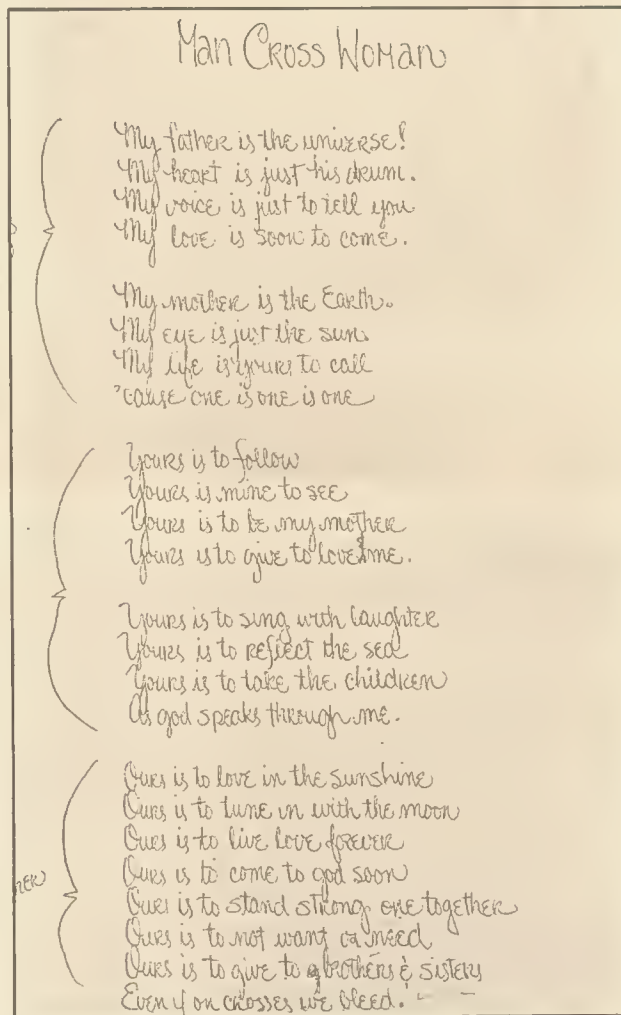 Man Cross Woman
My father is the universe!
My heart is just his drum.
My voice is just to tell you
My love is soon to come.
My mother is the Earth.
My eye is just the sun.
My life is yours to call
'cause one is one is one
Yours is to follow
Yours is mine to see
Yours is to be my mother
Yours is to give to love me.
Yours is to sing with laughter
Yours is to reflect the sea
Yours is to take the children
As god speaks through me.
Ours is to love in the sunshine
Ours is to tune in with the moon
Ours is to live love forever
Ours is to come to god soon
Ours is to stand strong one together
Ours is to not want or need
Ours is to give to brothers & sisters
Even if on crosses we bleed.